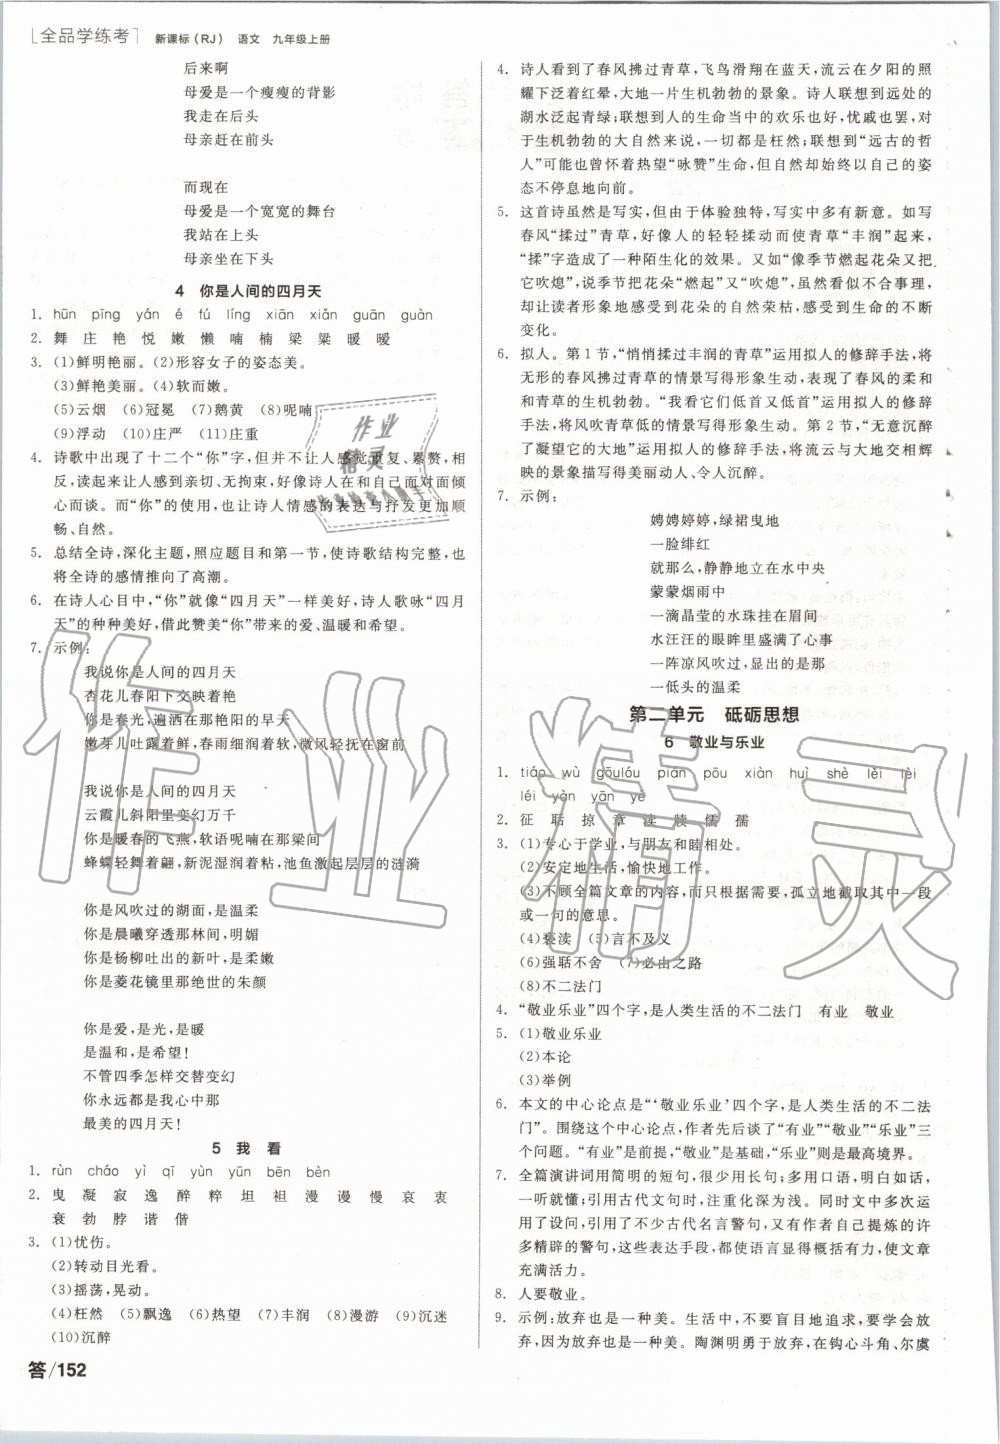 全品学练考 新课标(RJ) 语文 九年级上册
后来啊
母爱是一个瘦瘦的背影
我走在后头
母亲赶在前头
而现在
母爱是一个宽宽的舞台
我站在上头
母亲坐在下头
4 你是人间的四月天
1. hūn pīng yán é fú líng xiān xiǎn guān guàn
2. 舞 庄 艳 悦 嫩 懒 喃 楠 梁 粱 暖 暧
3. (1)鲜明艳丽。(2)形容女子的姿态美。
(3)鲜艳美丽。(4)软而嫩。
(5)云烟 (6)冠冕 (7)鹅黄 (8)呢喃
(9)浮动 (10)庄严 (11)庄重
4. 诗歌中出现了十二个“你”字,但并不让人感觉重复、累赘,相
反,读起来让人感到亲切、无拘束,好像诗人在和自己面对面倾
心而谈。而“你”的使用,也让诗人情感的表达与抒发更加顺
畅、自然。
5. 总结全诗,深化主题,照应题目和第一节,使诗歌结构完整,也
将全诗的感情推向了高潮。
6. 在诗人心目中,“你”就像“四月天”一样美好,诗人歌咏“四月
天”的种种美好,借此赞美“你”带来的爱、温暖和希望。
7. 示例:
我说你是人间的四月天
杏花儿春阳下交映着艳
你是春光,遍洒在那艳阳的春天
嫩芽儿吐露着鲜,春雨细细润着,微风轻抚在窗前
我说你是人间的四月天
云霞儿斜阳里变幻万千
你是暖春的飞燕,软语呢喃在那梁间
蜂蝶轻舞着翩,新泥湿润着粘,池鱼激起层层的涟漪
你是风吹过的湖面,是温柔
你是晨曦穿透那林间,明媚
你是杨柳吐出的新叶,是柔嫩
你是菱花镜里那绝世的朱颜
你是爱,是光,是暖
是温和,是希望!
不管四季怎样交替变幻
你永远都是我心中那
最美的四月天!
5 我 看
1. rùn cháo yì qī yùn yūn bēn bèn
2. 曳 凝 寂 逸 醉 粹 坦 袒 漫 谩 慢 哀 衷
衰 勃 脖 谐 偕
3. (1)忧伤。
(2)转动目光看。
(3)摇荡,晃动。
(4)枉然 (5)飘逸 (6)热望 (7)丰润 (8)漫游 (9)沉迷
(10)沉醉
答/152
4. 诗人看到了春风拂过青草,飞鸟滑翔在蓝天,流云在夕阳的照
耀下泛起红晕,大地一片生机勃勃的景象。诗人联想到远处的
湖水泛起青绿;联想到人的生命当中的欢乐也好,忧戚也罢,对
于生机勃勃的大自然来说,一切都是枉然;联想到“远古的哲
人”可能也曾怀着热望“咏赞”生命,但生命却始终以自己的姿
态不停息地向前。
5. 这首诗虽然是写实,但由于体验独特,写实中多有新意。如写
春风“揉过”青草,好像人的轻轻揉动而使青草“丰润”起来,
“揉”字造成了一种陌生化的效果。又如“像季节燃起花朵又把
它吹熄”,说季节把花朵“燃起”又“吹熄”,虽然看似不合事理,
却让读者形象地感受到花朵的自然荣枯,感受到生命的不断
变化。
6. 拟人。第1节,“悄悄揉过丰润的青草”运用拟人的修辞手法,将
无形的春风拂过青草的情景写得形象生动,表现了春风的柔和
和青草的生机勃勃。“我看它们低首又低首”运用拟人的修辞
手法,将春风吹青草低的情景写得形象生动。第2节,“无意沉醉
了凝望它的大地”运用拟人的修辞手法,将流云与大地交相辉
映的景象描写得美丽动人、令人沉醉。
7. 示例:
娉娉婷婷,绿裙曳地
一脸绯红
就那么,静静地立在水中央
蒙蒙烟雨中
一滴晶莹的水珠挂在眉间
水汪汪的眼眸里盛满了心事
一阵凉风吹过,显出的是那
一低头的温柔
第二单元 砥砺思想
6 敬业与乐业
1. tiáo wù gōulóu piàn pōu xiàn huì shè lèi lèi
léi yàn yān yè
2. 征 聒 掠 章 渎 牍 儒 孺
3. (1)专心于学业,与朋友和睦相处。
(2)安定地生活,愉快地工作。
(3)不顾全篇文章的内容,而只根据需要,孤立地截取其中一段
或一句的意思。
(4)亵渎 (5)言不及义
(6)强聒不舍 (7)必由之路
(8)不二法门
4. “敬业乐业”四个字,是人类生活的不二法门 有业 敬业
5. (1)敬业乐业
(2)本论
(3)举例
6. 本文的中心论点是“‘敬业乐业’四个字,是人类生活的不二法
门”。围绕这个中心论点,作者先后谈了“有业”“敬业”“乐业”三
个问题。“有业”是前提,“敬业”是基础,“乐业”则是最高境界。
7. 全篇演讲词用简明的短句,很少用长句;多用口语,明白如话,
一听就懂;引用古代文句时,注重化深为浅。同时文中多次运
用了设问,引用了不少古代名言警句,又有作者自己提炼的许
多精辟的警句,这些表达手段,都使语言显得概括有力,使文章
充满激情。
8. 人要敬业。
9. 示例:放弃也是一种美。生活中,不要盲目地追求,要学会放
弃,因为放弃也是一种美。陶渊明勇于放弃,在钩心斗角、尔虞
作业精灵